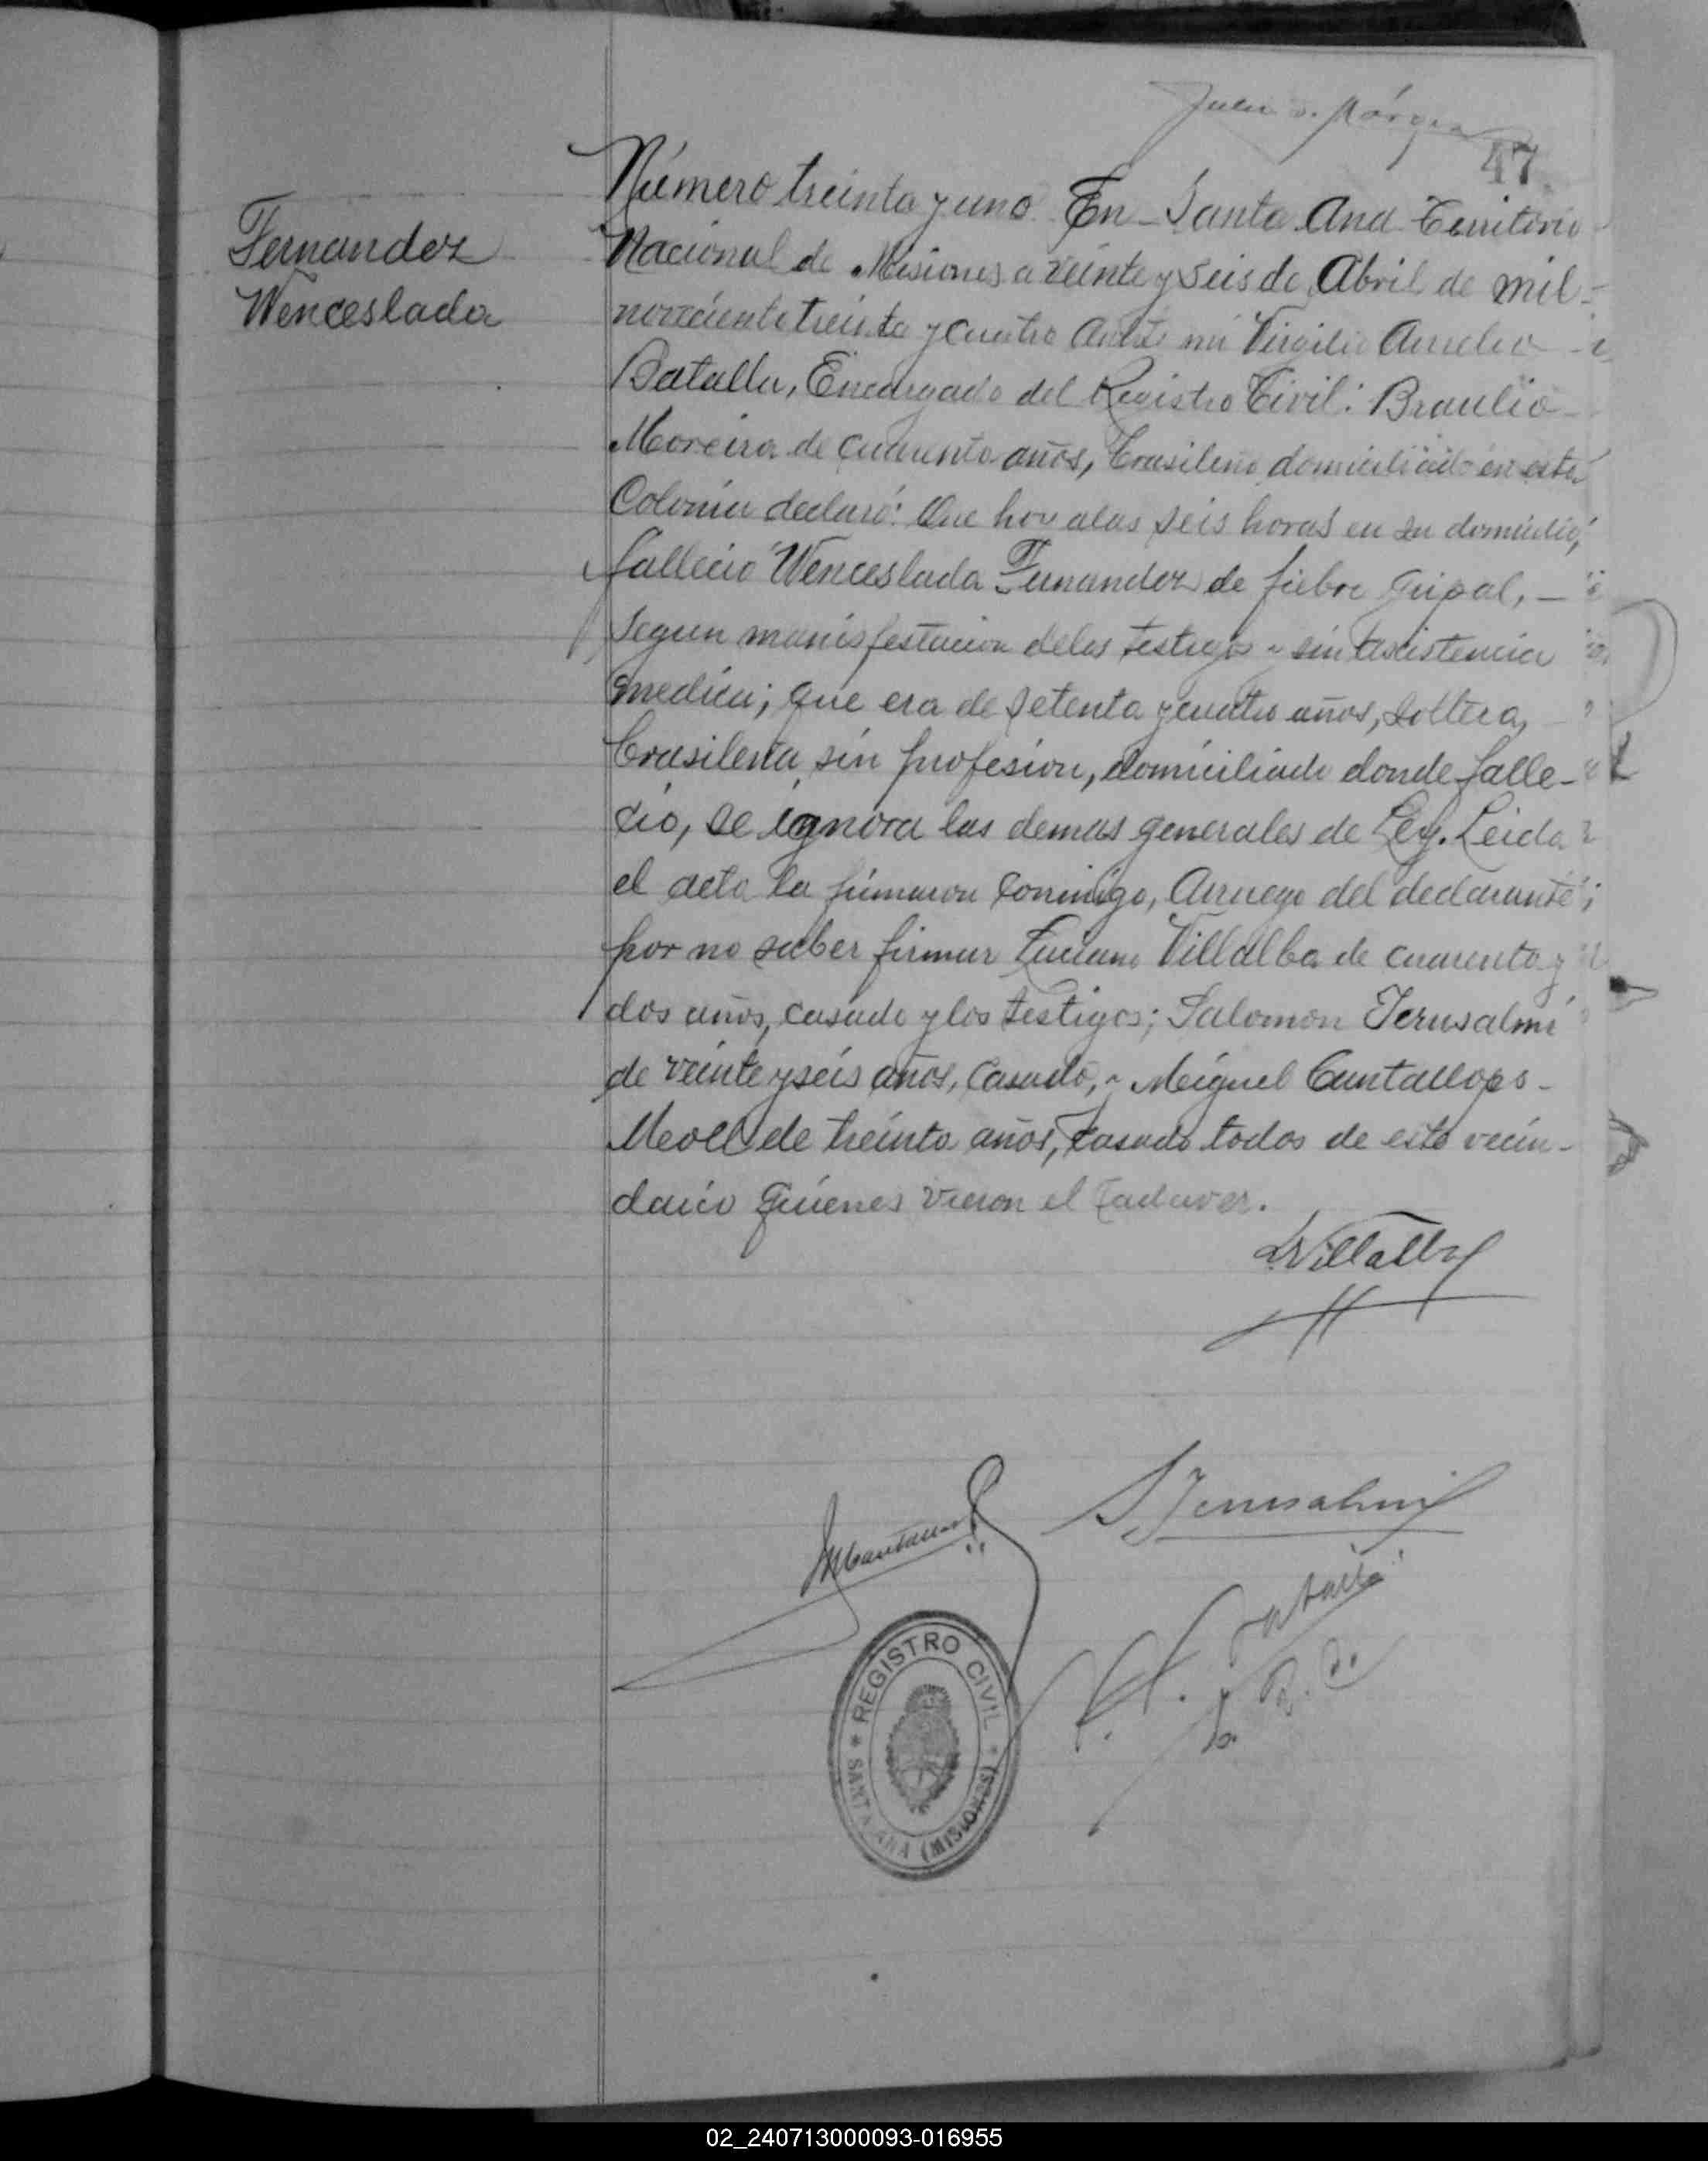 47
Fernandez
Wenceslada
Número treinta y uno. En Santa Ana Territorio
Nacional de Misiones a veinte y seis de Abril de mil
novecientos treinta y cuatro Ante mi Virgilio Aurelio
Batalla, Encargado del Registro Civil: Braulio
Moreira de cuarenta años, brasileño domiciliado en esta
Colonia declaró: Que hoy a las seis horas en su domicilio,
falleció Wenceslada Fernandez de fiebre gripal, —
segun manisfestacion delos testigos y sin asistencia
medica; que era de setenta y cuatro años, soltera,
brasileña, sin profesion, domiciliado donde falle-
cio, se ignora las demas generales de Ley. Leida
el acta la firmaron conmigo, Arruego del declarante;
por no saber firmar Luciano Villalba de cuarenta y
dos años, casado y los testigos; Salomon Jerusalmi
de veinte y seis años, casado, y Miguel Cantallops
Meoll de treinta años, casado todos de este vecin-
dario quienes vieron el cadaver.
LVillalba
SJerusalmi
REGISTRO CIVIL
SANTA ANA (MISIONES)
02_240713000093-016955